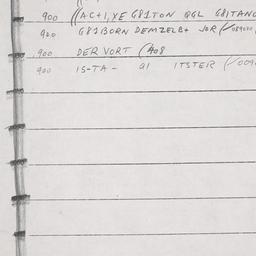 900 ((AC+1,YE G81TON QGL G81TANC
900 G81BORN DEMZELB+ JOR (/089020
900 DER VORT (/408
900 15-TA- 91 ITSTER (/009